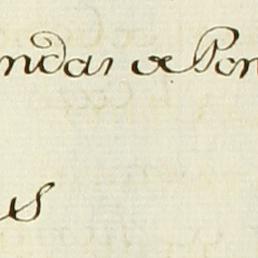 ndas de Pon
s